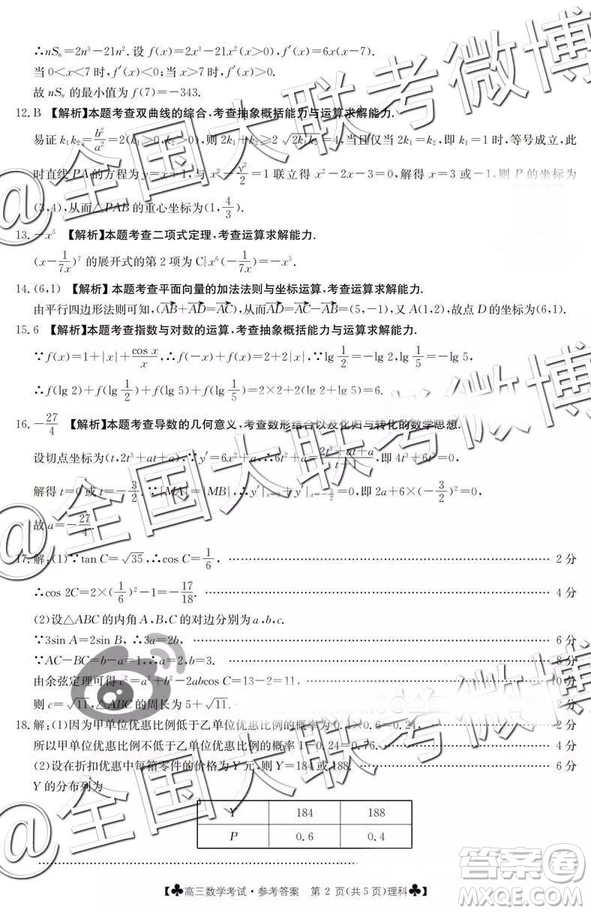 ∴nSₙ=2n³-21n². 设 f(x)=2x³-21x²(x>0), f′(x)=6x(x-7).
当 0<x<7 时, f′(x)<0; 当 x>7 时, f′(x)>0.
故 nSₙ 的最小值为 f(7)=-343.
12. B 【解析】本题考查双曲线的综合, 考查抽象概括能力与运算求解能力.
易证 k₁k₂=b²/a²=2(k₁>0, k₂>0), 则 2k₁+k₂≥2√(2k₁k₂)=4, 当且仅当 2k₁=k₂, 即 k₁=1 时, 等号成立, 此
时直线 PA 的方程为 y=x+1, 与 x²-y²/2=1 联立得 x²-2x-3=0, 解得 x=3, 则 P 的坐标为
(3,4), 从而△PAB 的重心坐标为(1, 4/3).
13. -x⁵ 【解析】本题考查二项式定理, 考查运算求解能力.
(x-1/7x)⁷ 的展开式的第 2 项为 C₇¹x⁶(-1/7x)=-x⁵.
14. (6,1) 【解析】本题考查平面向量的加法法则与坐标运算, 考查运算求解能力.
由平行四边形法则可知, AB+AD=AC, 从而AD=AC-AB=(5,-1), 又 A(1,2), 故点 D 的坐标为(6,1).
15. 6 【解析】本题考查指数与对数的运算, 考查抽象概括能力与运算求解能力.
∵f(x)=1+|x|+cos x/x, ∴f(-x)+f(x)=2+2|x|, ∵lg 1/2=-lg 2, lg 1/5=-lg 5,
∴f(lg 2)+f(lg 1/2)+f(lg 5)+f(lg 1/5)=2×2+2(lg 2+lg 5)=6.
16. -27/4 【解析】本题考查导数的几何意义, 考查数形结合以及化归与转化的数学思想.
设切点坐标为(t, 2t³+at+a), ∵y′=6x²+a, ∴6t²+a=, 即 4t³+6t²=0,
解得 t=0 或 t=-3/2, ∵|MA|=|MB|, ∴y′|ₓ₌₀+y′|ₓ₌₋₃/₂=0, 即 2a+6×(-3/2)²=0,
故 a=-27/4.
17. 解: (1)∵tan C=√35, ∴cos C=1/6, …… 2 分
∴cos 2C=2×(1/6)²-1=-17/18. …… 4 分
(2)设△ABC 的内角 A, B, C 的对边分别为 a, b, c.
∵3sin A=2sin B, ∴3a=2b, …… 6 分
∵AC-BC=b-a=1, ∴a=2, b=3. …… 8 分
由余弦定理可得 c²=a²+b²-2abcos C=13-2=11, …… 10 分
则 c=√11, △ABC 的周长为 5+√11. …… 12 分
18. 解: (1)因为甲单位优惠比例低于乙单位优惠比例的概率为 0.4×0.6=0.24,
所以甲单位优惠比例不低于乙单位优惠比例的概率 1-0.24=0.76. …… 4 分
(2)设在折扣优惠中每箱零件的价格为 Y 元, 则 Y=184 或 188. …… 6 分
Y 的分布列为
Y 184 188
P 0.6 0.4
♣高三数学考试·参考答案 第 2 页(共 5 页)理科♣
@全国大联考微博
@全国大联考微博
@全国大联考微博